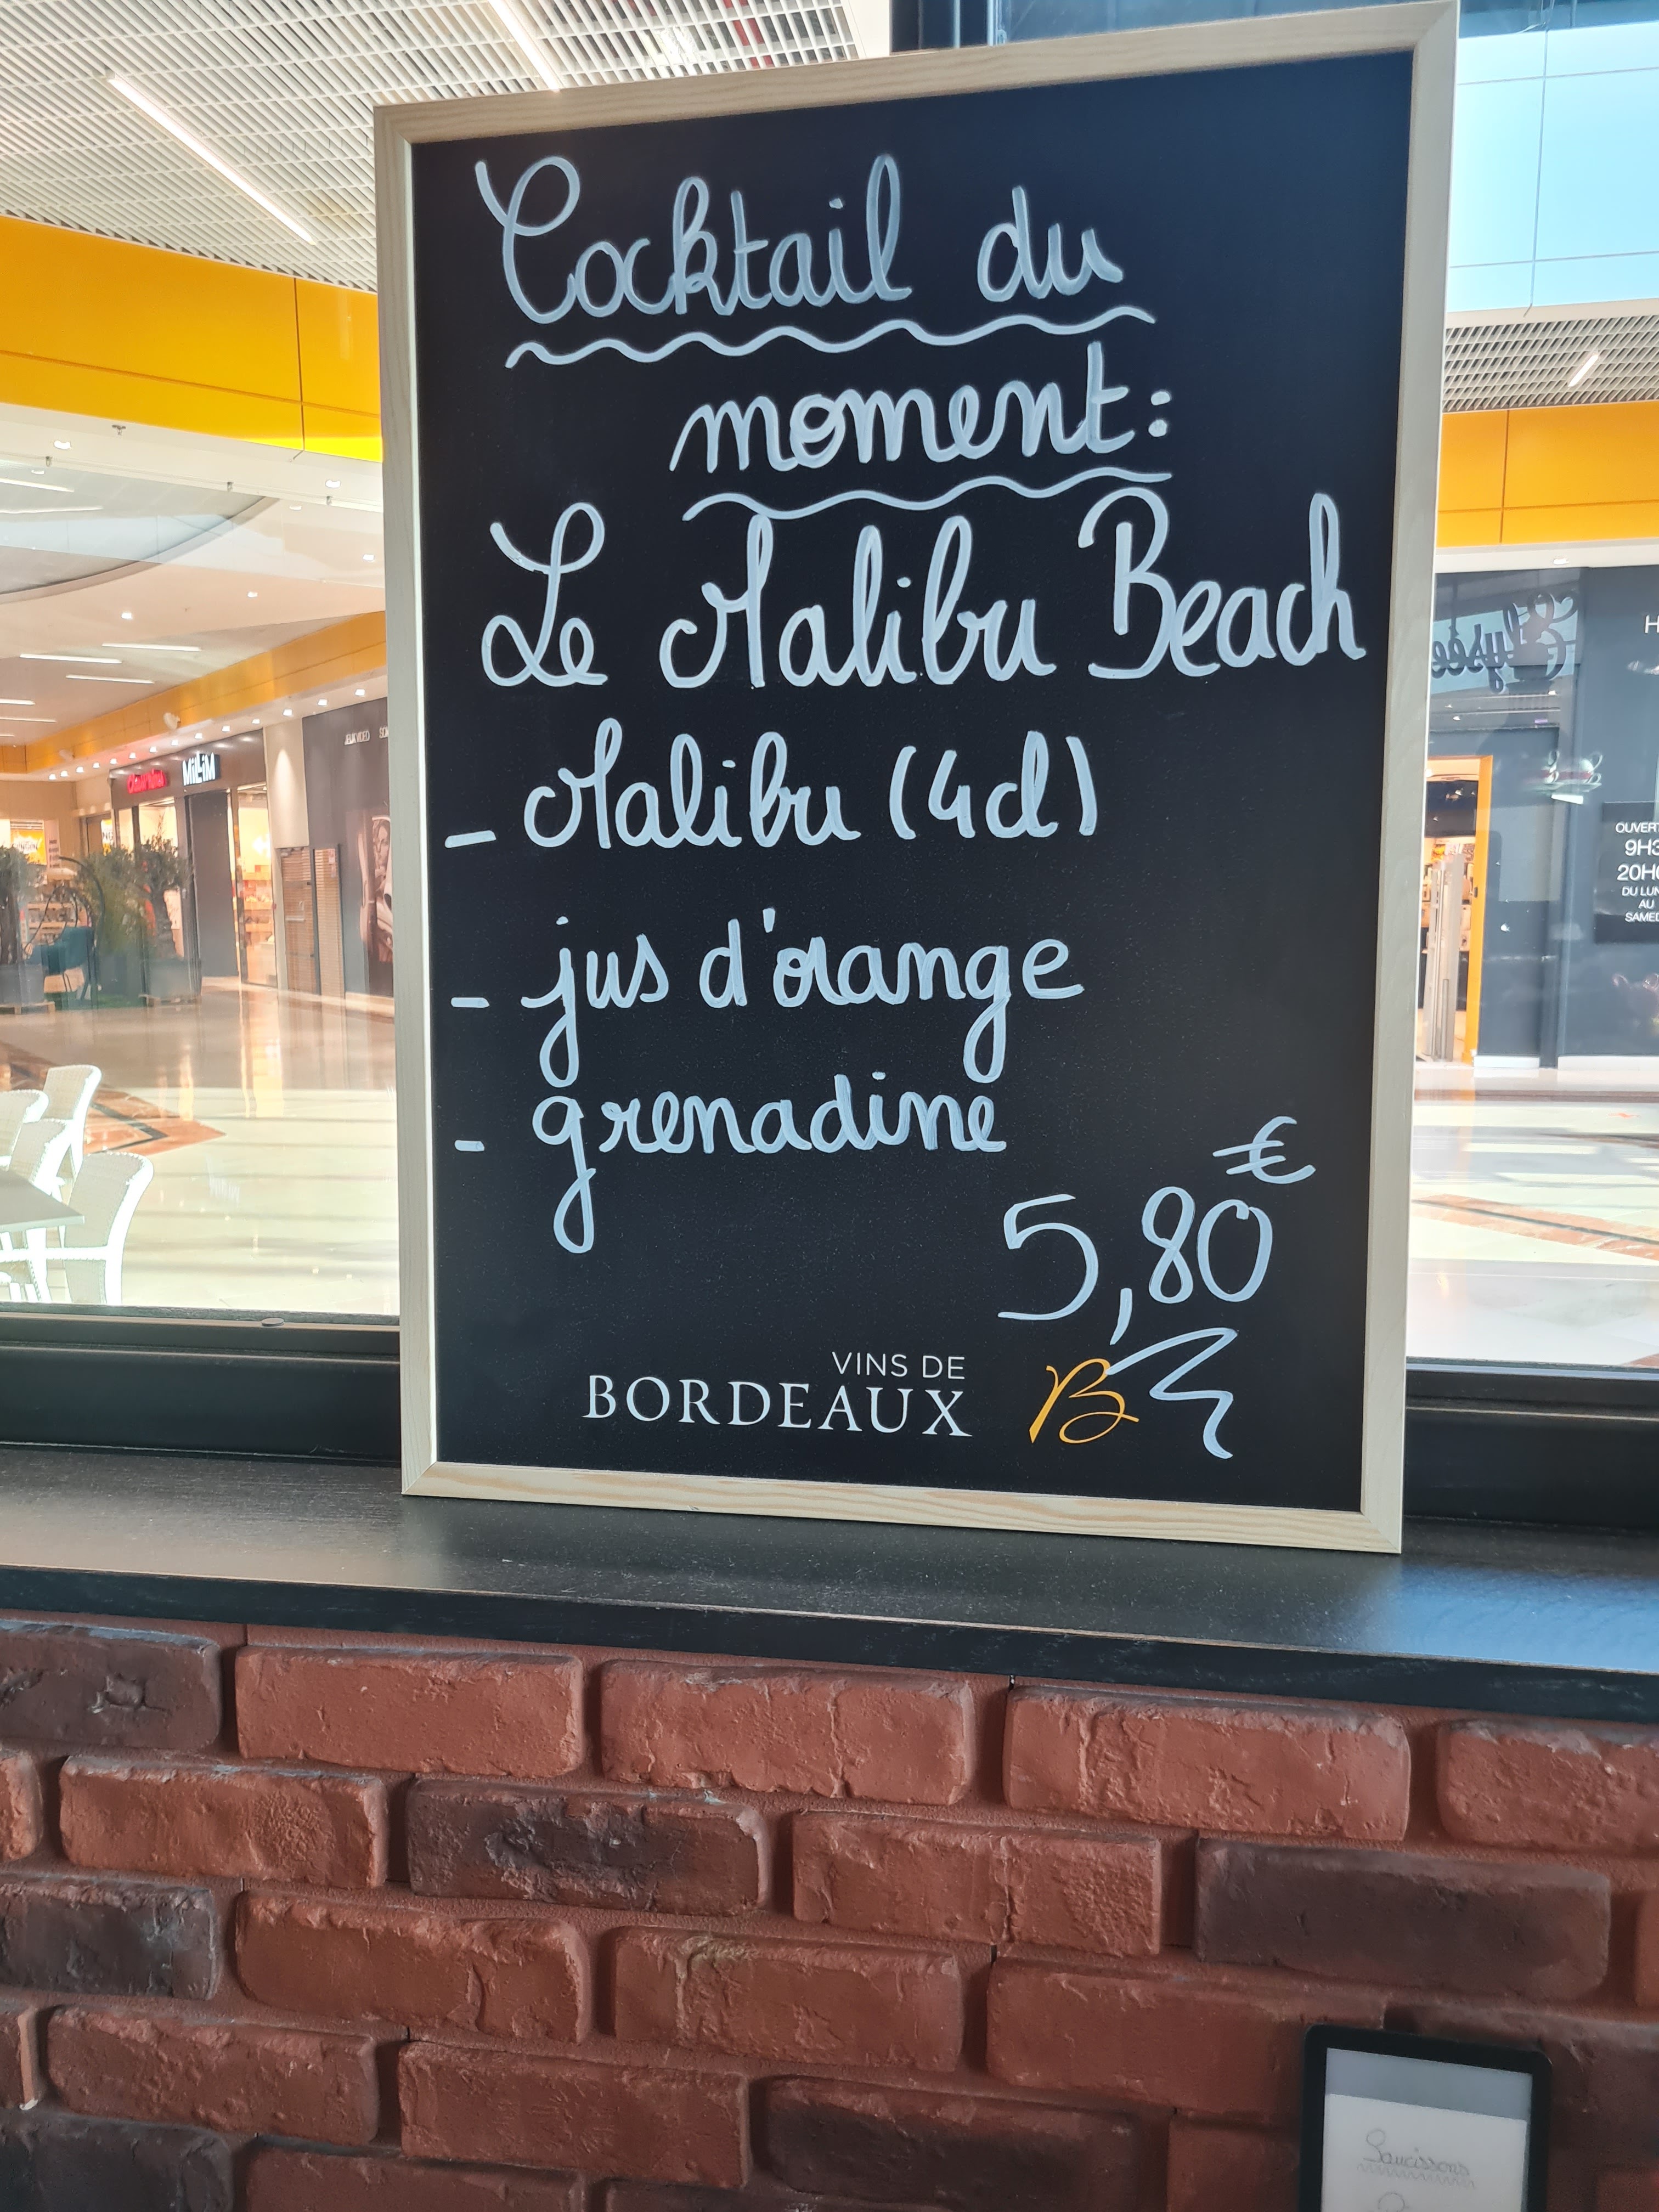 Cocktail du
moment:
Le Malibu Beach
- Malibu (4cl)
- jus d'orange
- grenadine
€
5,80
VINS DE
BORDEAUX B
MiLiM
JEUX VIDEO
Elysée
H
OUVERT
9H3
20H
DU LUN
AU
SAMED
Saucissons